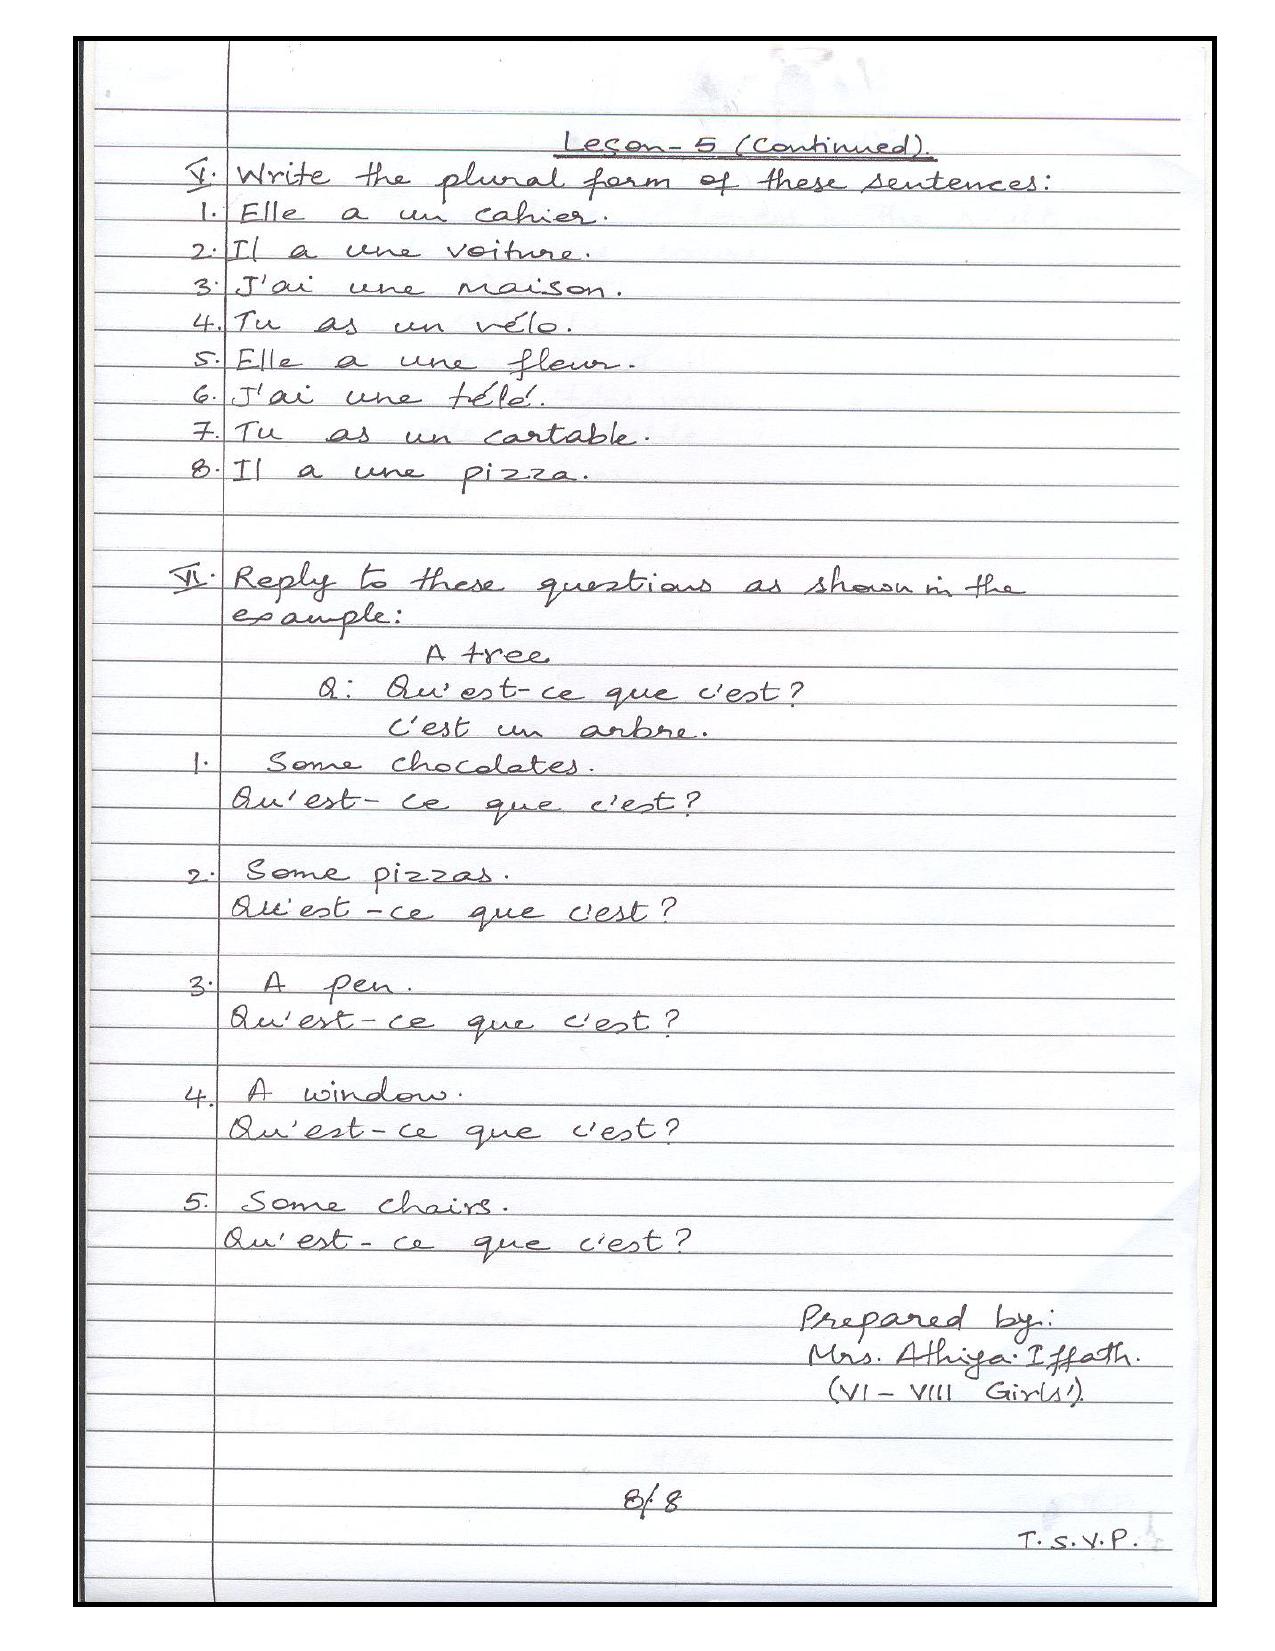 Leçon-5 (Continued).
V. Write the plural form of these sentences:
1. Elle a un cahier.
2. Il a une voiture.
3. J'ai une maison.
4. Tu as un vélo.
5. Elle a une fleur.
6. J'ai une télé.
7. Tu as un cartable.
8. Il a une pizza.
VI. Reply to these questions as shown in the
example:
A tree
Q: Qu'est-ce que c'est?
C'est un arbre.
1. Some chocolates.
Qu'est-ce que c'est?
2. Some pizzas.
Qu'est-ce que c'est?
3. A pen.
Qu'est-ce que c'est?
4. A window.
Qu'est-ce que c'est?
5. Some chairs.
Qu'est-ce que c'est?
Prepared by:
Mrs. Athiya. Iffath.
(VI - VIII Girls')
8/8
T.S.V.P.